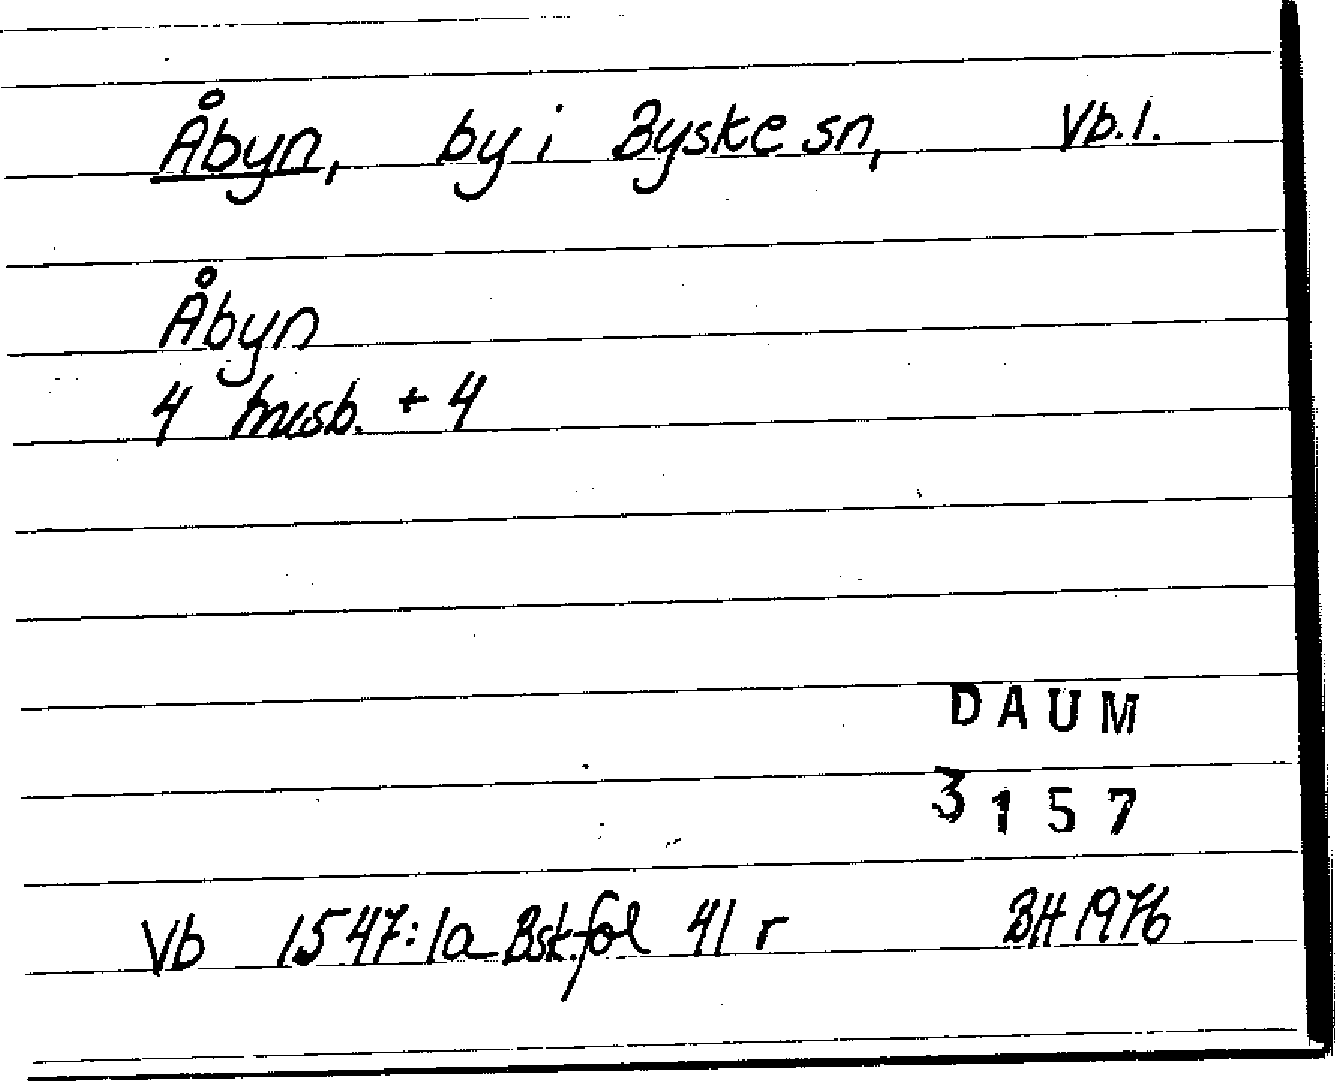 Åbyn, by i Byske sn, Vb. l.
Åbyn
4 husb. + 4
DAUM
3157
Vb 1547:1a Bsk. fol 41 r BH 1976